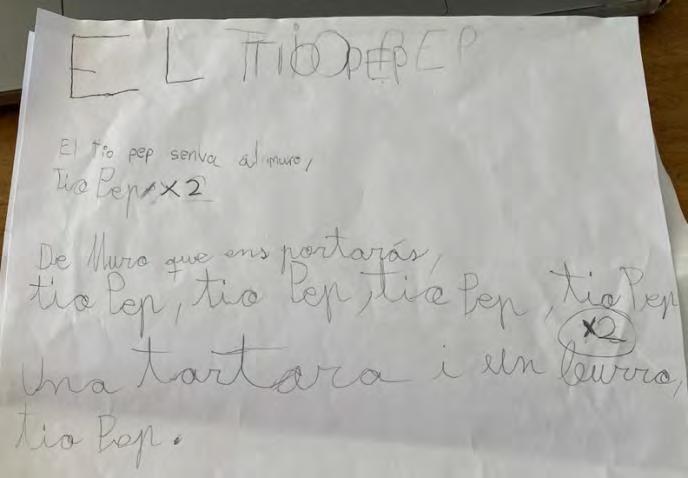 EL TIO PEP
El tio pep senva al muro,
tio Pep, x2
De Muro que ens portarás,
tio Pep, tio Pep, tio Pep, tio Pep
x2
Una tartara i un burro,
tio Pep.